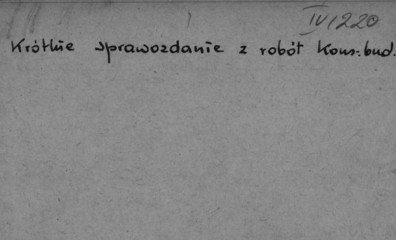 IV/220
Krótkie sprawozdanie z robót Kons.-bud.